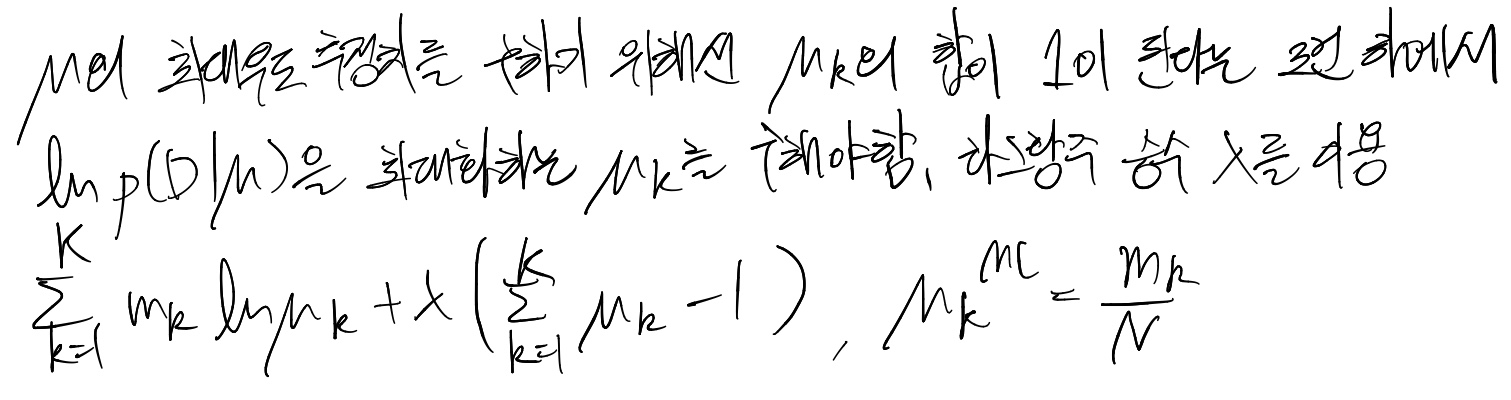 μ의 최대우도 추정치를 구하기 위해선 μk의 합이 1이 된다는 조건 하에서
ln p(D|μ)을 최대화하는 μk를 구해야함, 라그랑주 승수 λ를 이용
∑_{k=1}^{K} m_k ln μ_k + λ(∑_{k=1}^{K} μ_k − 1), μ_k^{ML} = m_k/N